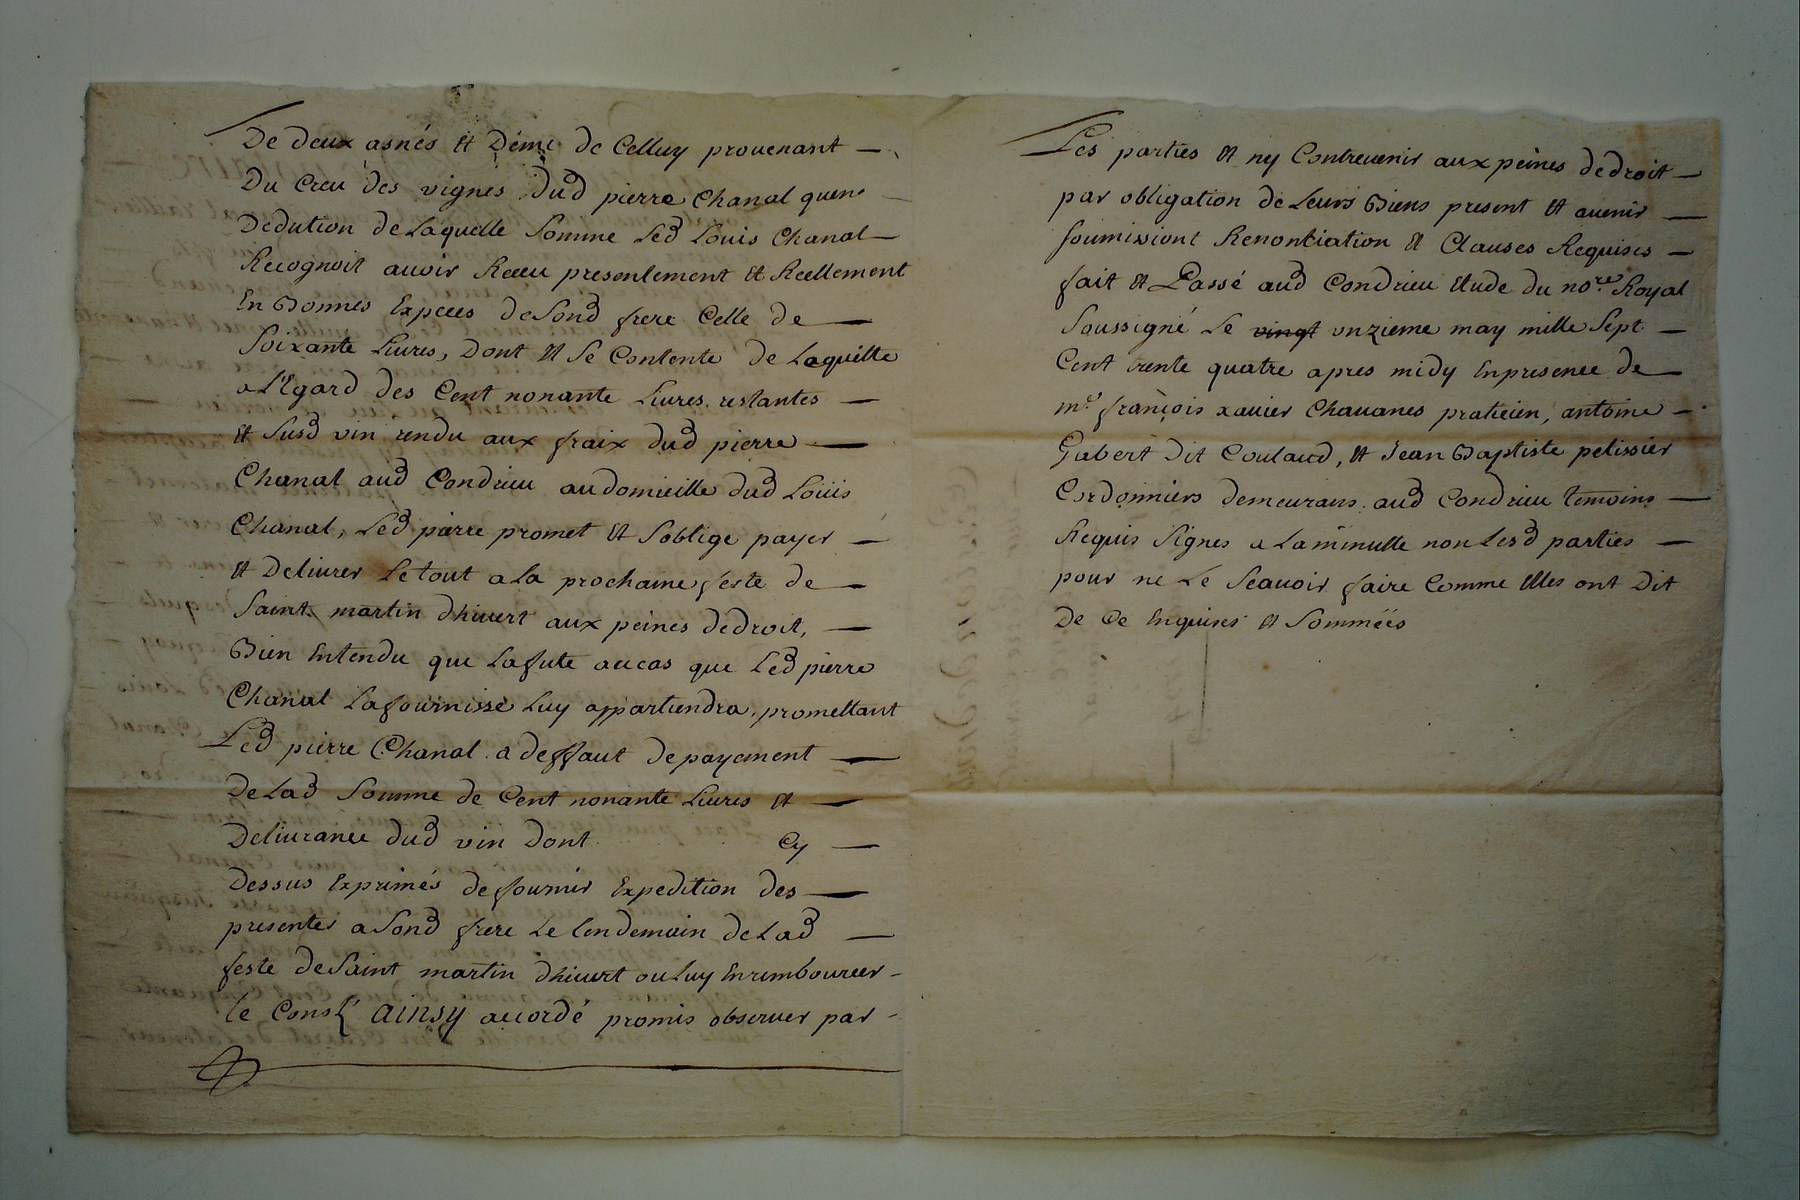 De deux asnés et Démi de Celluy prouenant
Du Creu des vignes dud pierre Chanal quen
Dedution de Laquelle Somme Led Louis Chanal
Recognoit auoir Receu presentement et Reellement
En Bonnes Expeces de Sond frere Celle de
Soixante Liures, Dont Il Se Contente de Laquitte
a L'Egard des Cent nonante Liures restantes
et Susd vin rendu aux fraix dud pierre
Chanal aud Condrieu au domicille dud Louis
Chanal, Led pierre promet et Soblige payer
et Deliurer Le tout a La prochaine feste de
Saint martin dhiuert aux peines de droit,
Bien Entendu que La fute au cas que Led pierre
Chanal La fournisse Luy appartiendra, promettant
Led pierre Chanal a deffaut de payement
De Lad Somme de Cent nonante Liures et
Deliurance dud vin Dont Cy
Dessus Exprimés de fournir Expedition des
presentes a Sond frere Le lendemain de Lad
feste de Saint martin dhiuert ou Luy En rembourcer
le ainsy accordé promis obseruer par
Les parties et ny Contreuenir aux peines de droit
par obligation de Leurs Biens present et auenir
soumissions Renontiation et Clauses Requises
fait et Passé aud Condrieu Etude du nore Royal
Soussigné Le vingt unzieme may mille Sept
Cent trente quatre apres midy En presence de
me françois xauier Chauanes praticien, antoine
Gabert Dit Coulaud, et Jean Baptiste pelissier
Cordonniers demeurans aud Condrieu temoins
Requis Signes a La minutte non Lesd parties
pour ne Le Scauoir faire Comme Elles ont Dit
De Ce Enquises et Sommées